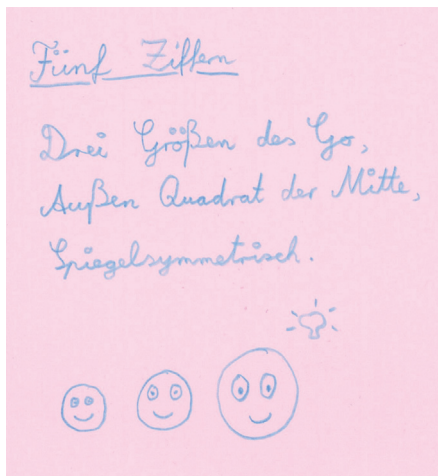 Fünf Ziffern
Drei Größen des Go,
Außen Quadrat der Mitte,
Spiegelsymmetrisch.